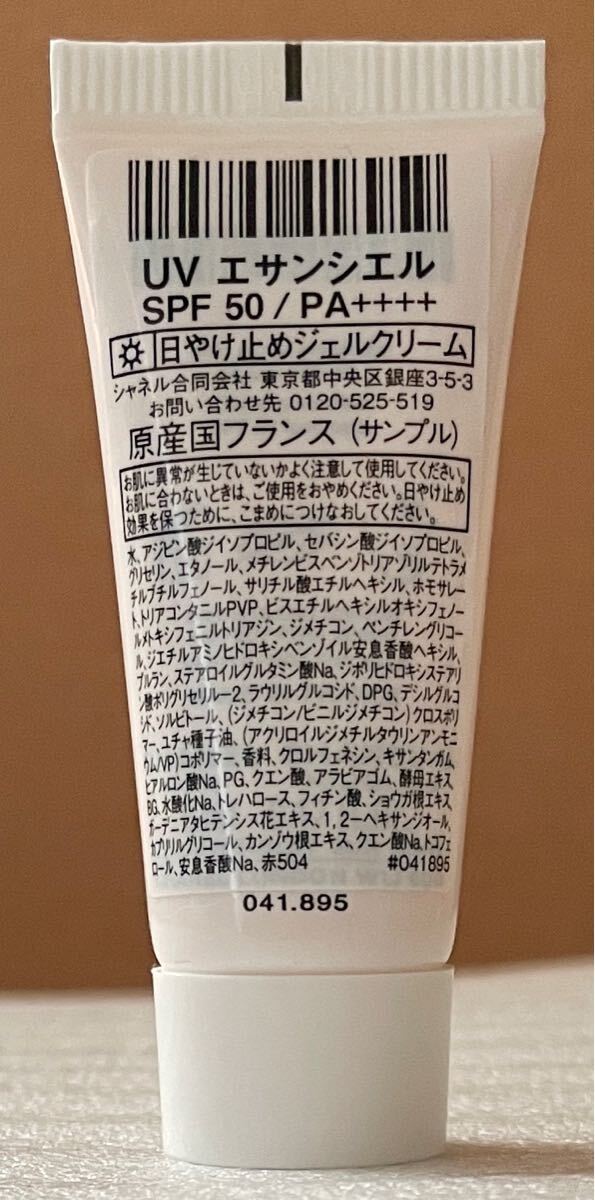 UV エサンシエル
SPF 50 / PA++++
日やけ止めジェルクリーム
シャネル合同会社 東京都中央区銀座3-5-3
お問い合わせ先 0120-525-519
原産国フランス（サンプル）
お肌に異常が生じていないかよく注意して使用してください。
お肌に合わないときは、ご使用をおやめください。日やけ止め
効果を保つために、こまめにつけなおしてください。
水、アジピン酸ジイソプロピル、セバシン酸ジイソプロピル、
グリセリン、エタノール、メチレンビスベンゾトリアゾリルテトラメ
チルブチルフェノール、サリチル酸エチルヘキシル、ホモサレー
ト、トリアコンタニルPVP、ビスエチルヘキシルオキシフェノー
ルメトキシフェニルトリアジン、ジメチコン、ペンチレングリコー
ル、ジエチルアミノヒドロキシベンゾイル安息香酸ヘキシル、
プルラン、ステアロイルグルタミン酸Na、ジポリヒドロキシステアリ
ン酸ポリグリセリル−2、ラウリルグルコシド、DPG、デシルグルコ
シド、ソルビトール、（ジメチコン/ビニルジメチコン）クロスポリ
マー、ユチャ種子油、（アクリロイルジメチルタウリンアンモニ
ウム/VP）コポリマー、香料、クロルフェネシン、キサンタンガム、
ヒアルロン酸Na、PG、クエン酸、アラビアゴム、酵母エキス、
BG、水酸化Na、トレハロース、フィチン酸、ショウガ根エキス、
ガーデニアタヒテンシス花エキス、1,2−ヘキサンジオール、
カプリリルグリコール、カンゾウ根エキス、クエン酸Na、トコフェ
ロール、安息香酸Na、赤504 #041895
041.895